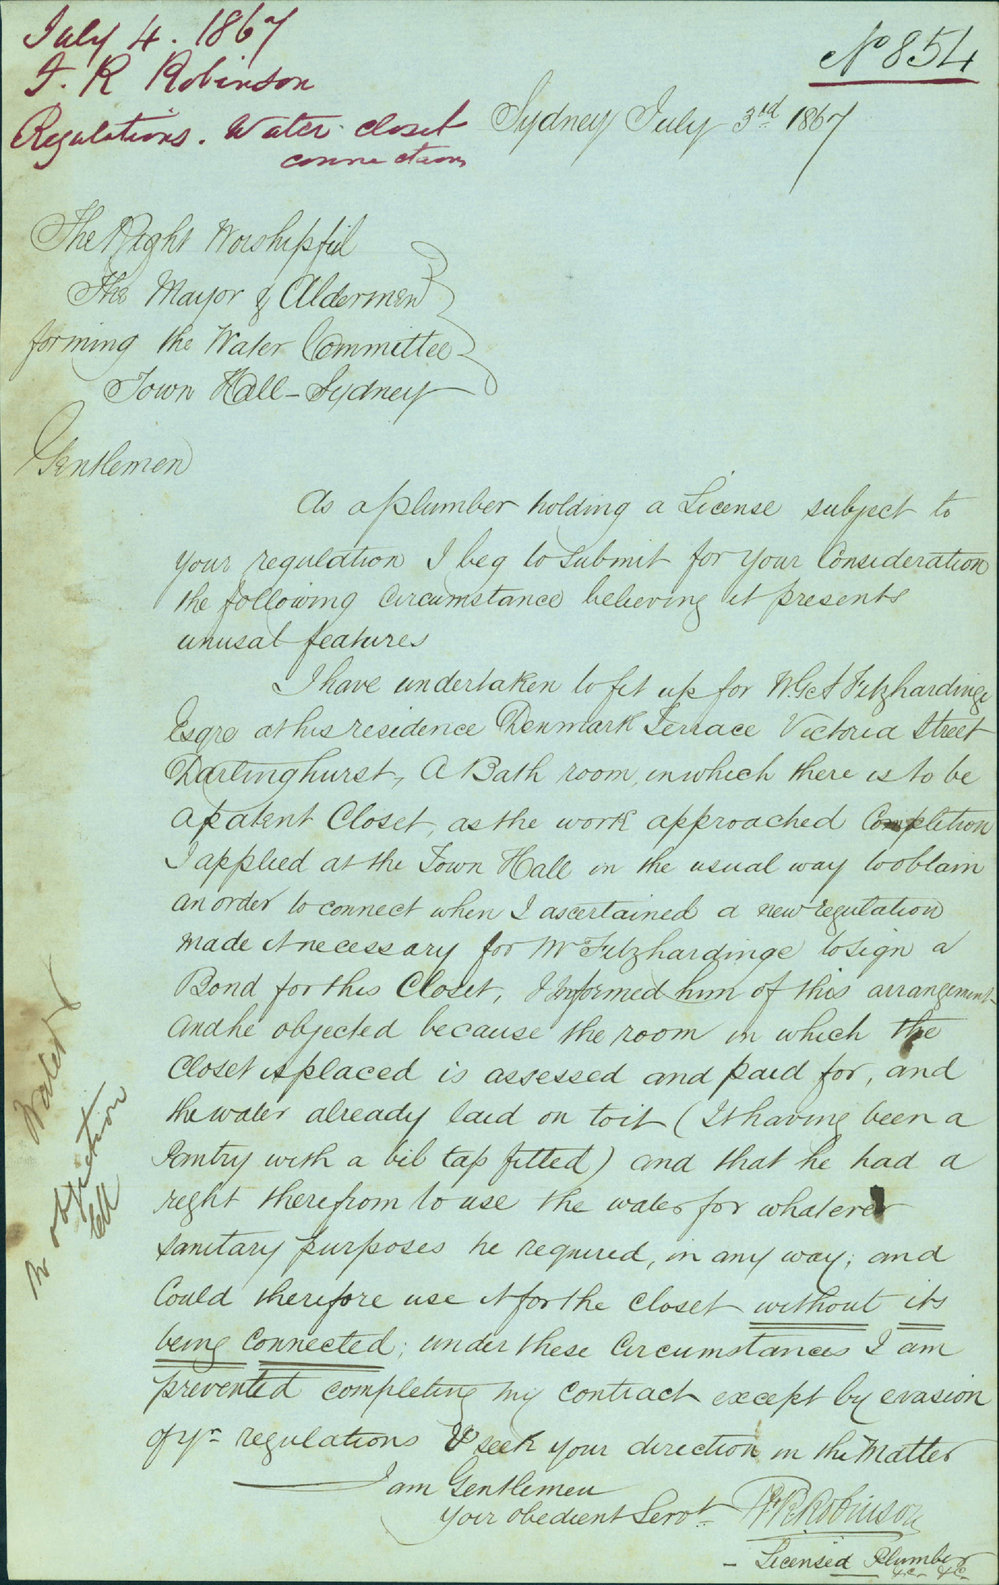 July 4. 1867
F. R Robinson
Regulations. Water closet
connections
No 854
Sydney July 3rd 1867
The Right Worshipful
The Mayor & Aldermen
forming the Water Committee
Town Hall - Sydney
Gentlemen
As a plumber holding a License subject to
your regulation I beg to submit for your Consideration
the following Circumstance believing it presents
unusal features
I have undertaken to fit up for W. G. A Fitzhardinge
Esqre at his residence Denmark Terrace Victoria Street
Darlinghurst, A Bath room, in which there is to be
a patent Closet, as the work approached Completion
I applied at the Town Hall in the usual way to obtain
an order to connect when I ascertained a new regulation
made it necessary for Mr Fitzhardinge to sign a
Bond for this Closet, I informed him of this arrangement
and he objected because the room in which the
Closet is placed is assessed and paid for, and
the water already laid on to it (It having been a
Pantry with a bib tap fitted) and that he had a
right therefrom to use the water for whatever
sanitary purposes he required, in any way; and
Could therefore use it for the closet without its
being connected; under these Circumstances I am
prevented completing my contract except by evasion
of yr regulations & seek your direction in the Matter
I am Gentlemen
Your obedient Servt
F R Robinson
- Licensed Plumber
&c &c
Water
no objection